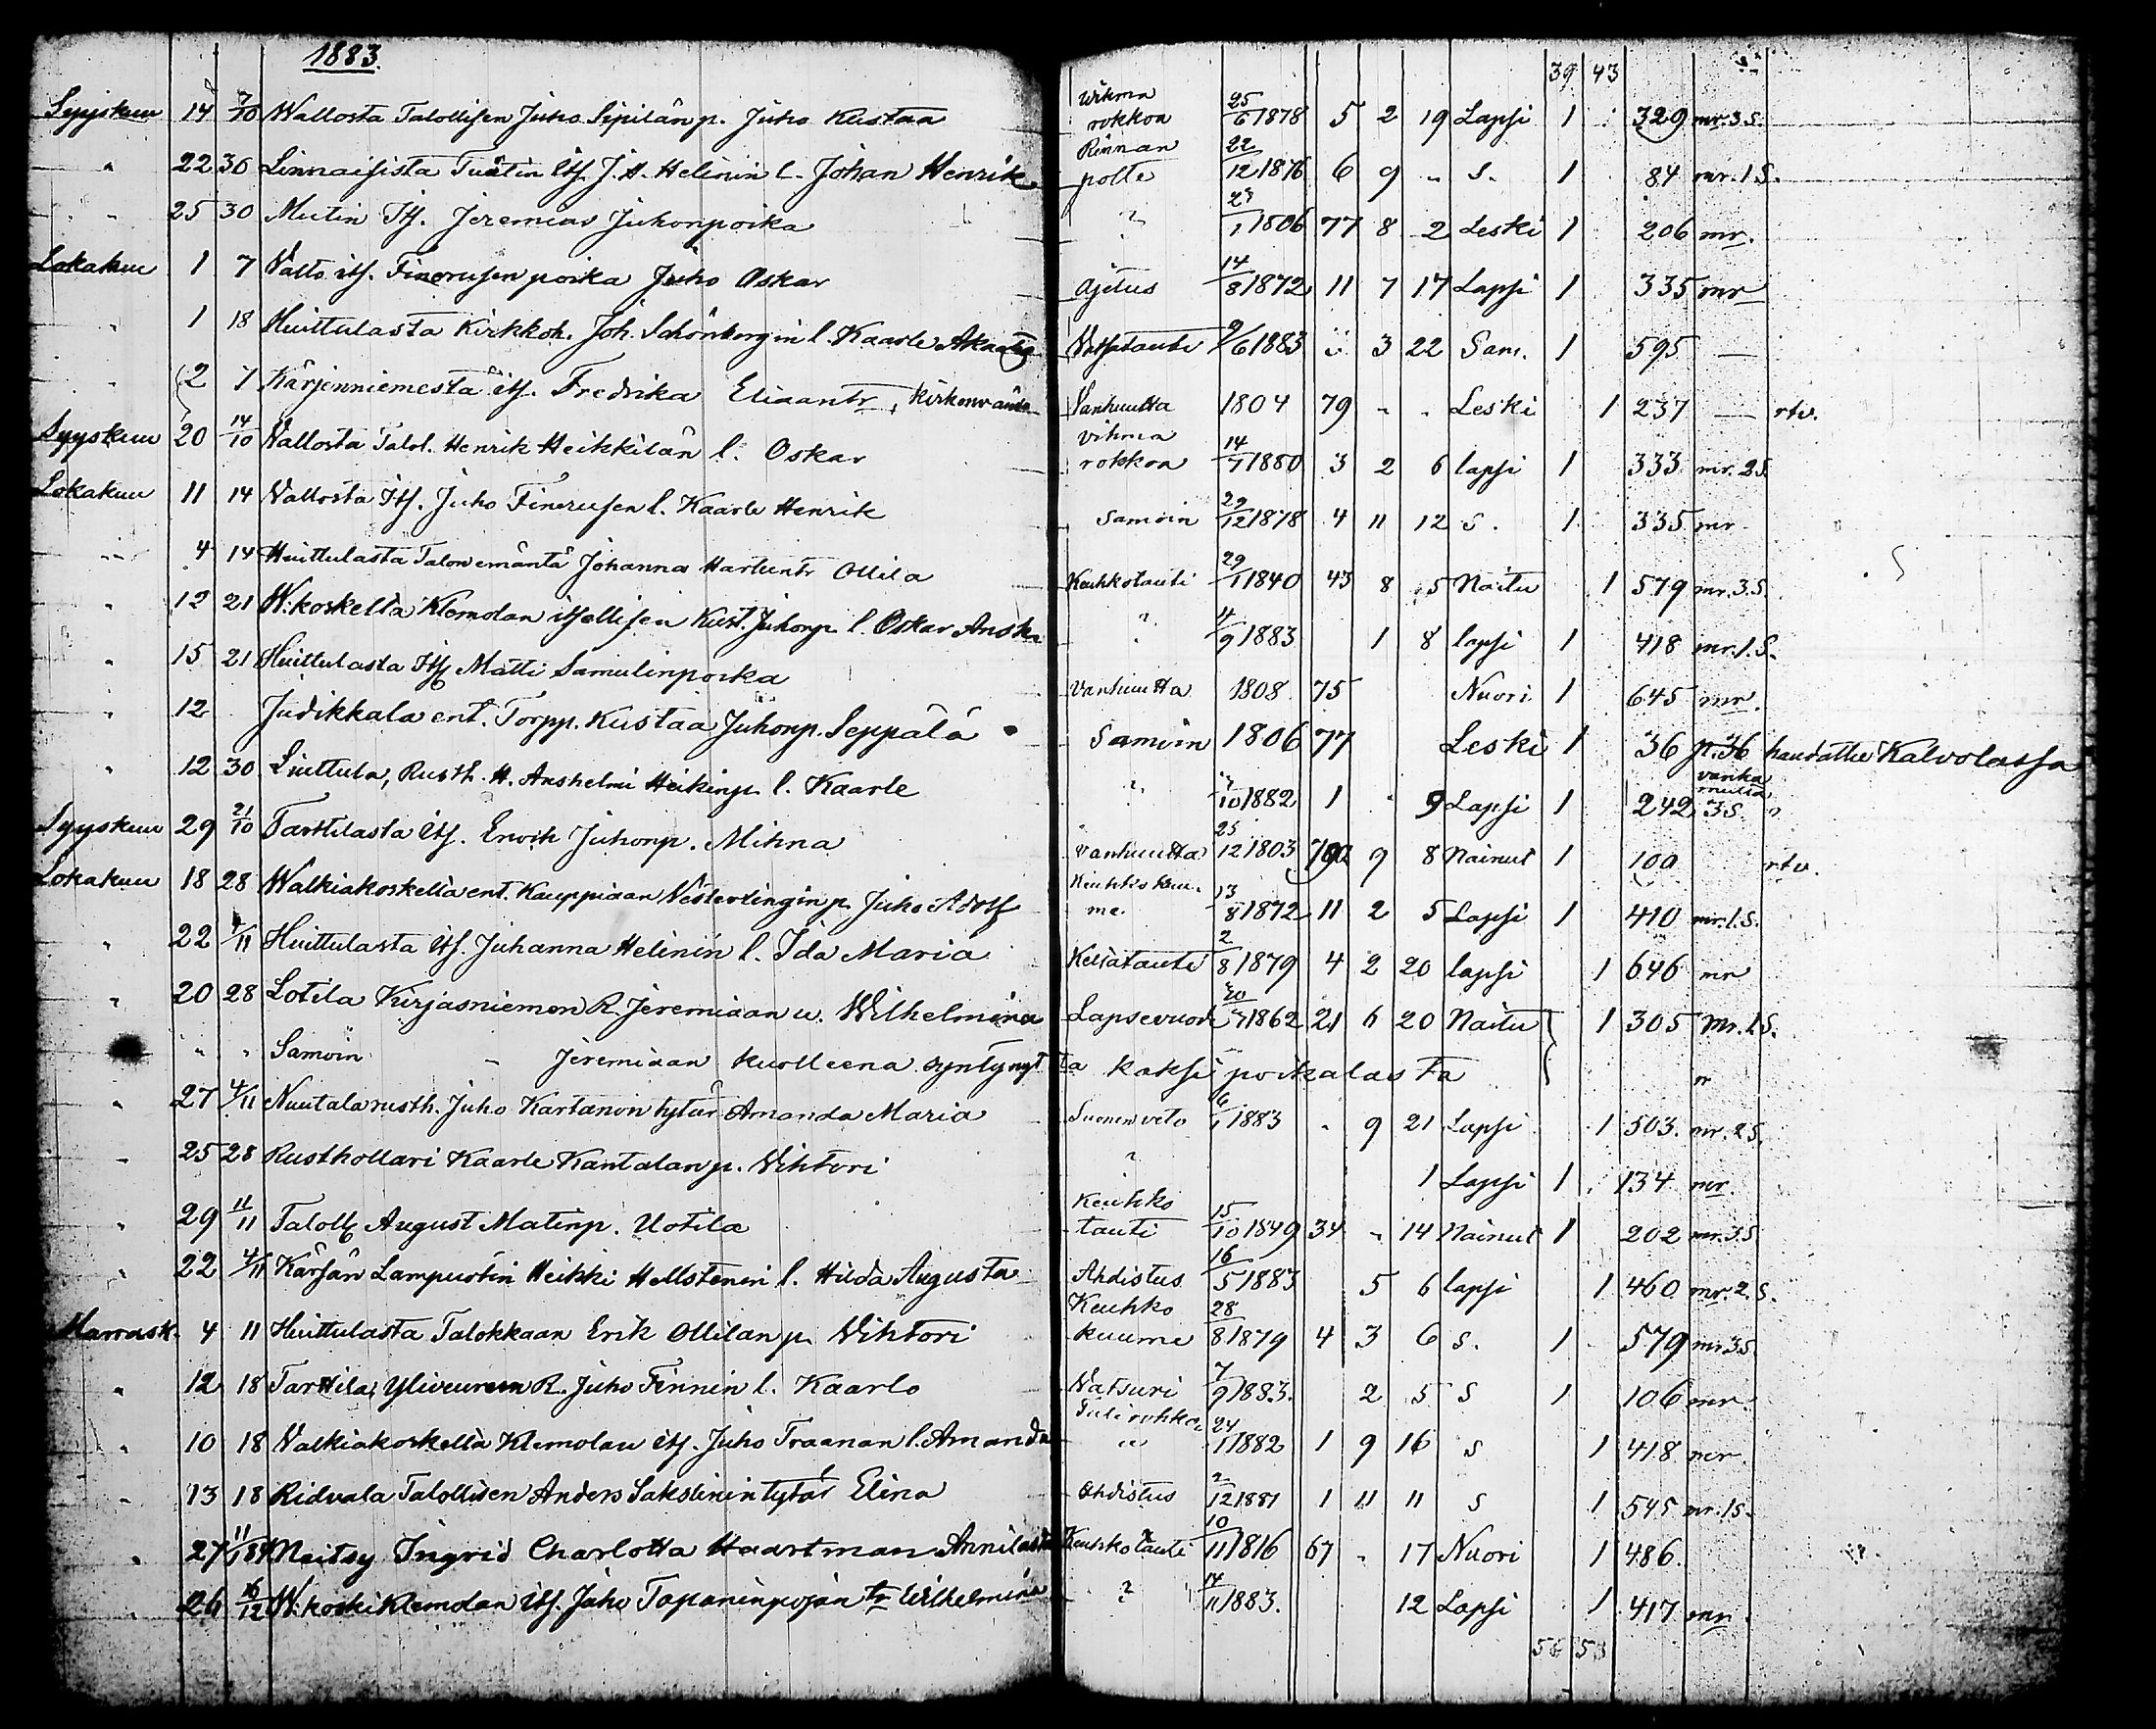 1883.
39 43
Syyskuu 14 7/10 Wallosta Talollisen Juho Sipilän p. Juho Kustaa Wihma rokkoa 25/6 1878 5 2 19 Lapsi 1 329 mr. 3 S.
" 22 30 Linnaisista Its. J. A. Helinin l. Johan Henrik Rinnan polte 22/12 1876 6 9 " S. 1 84 mr. 1 S.
" 25 30 Mutin Its. Jeremias Juhonpoika ? 1806 77 8 2 Leski 1 206 mr.
Lokakuu 1 7 Vallo its. Finerusen poika Juho Oskar Ajetus 14/8 1872 11 7 17 Lapsi 1 335 mr
" 1 18 Huittulasta Kirkkoh. Joh. Schönbergin l. Kaarle Vatsatauti 9/6 1883 " 3 22 Sam. 1 595 —
" 2 7 Kärjenniemestä its. Fredrika Eliaantr, Vanhuutta 1804 79 " " Leski 1 237 — rtv.
Syyskuu 20 14/10 Vallosta Talol. Henrik Heikkilän l. Oskar vihma rokkoa 14/7 1880 3 2 6 lapsi 1 333 mr. 2 S.
Lokakuu 11 14 Vallosta Its. Juho Finerusen l. Kaarle Henrik Samoin 29/12 1878 4 11 12 S. 1 335 mr
" 4 14 Huittulasta Talon emäntä Johanna Ollila Keuhkotauti 29/1 1840 43 8 5 Naitu 1 579 mr. 3 S.
" 12 21 W:koskelta Klemolan itsellisen Kust. Juhonp. l. Oskar ? 4/9 1883 1 8 lapsi 1 418 mr. 1. S.
" 15 21 Huittulasta Its Matti Samulinpoika Vanhuutta 1808 75 Nuori 1 645 mr.
" 12 Judikkala ent. Torpp. Kustaa Juhonp. Seppälä Samoin 1806 77 Leski 1 36 p. 36 haudattu Kalvolassa
" 12 30 Liuttula, Rusth. H. Anshelmi Heikinp. l. Kaarle ? 10 1882 1 " 9 Lapsi 1 242 vanha multa 3 S. "
Syyskuu 29 21/10 Tarttilasta its. Erwih Juhonp. Mihna Vanhuutta 12 1803 9 8 Nainut 1 100 rtv.
Lokakuu 18 28 Walkiakoskelta ent. Kauppiaan Vesterlingin p. Juho Adolf Keuhkokuume. 13/8 1872 11 2 5 Lapsi 1 410 mr. 1. S.
" 22 11 Huittulasta its. Juhanna Helinin l. Ida Maria 2/8 1879 4 2 20 lapsi 1 646 mr
" 20 28 Lotila Kirjasniemen R. Jeremiaan v. Wilhelmina Lapsevuode 1862 21 6 20 Naitu 1 305 mr. 1 S.
" " Samoin " Jeremiaan kuolleena syntynyttä kaksi poikalasta "
" 27 4/11 Nuutala rusth. Juho Kartanon tytär Amanda Maria Suonenveto 6/1 1883 " 9 21 Lapsi 1 503. mr. 2 S.
" 25 28 Rusthollari Kaarle Kantalan p. Vihtori ? 1 Lapsi 1 134 mr.
" 29 11/11 Taloll August Matinp. Uotila Keuhko tauti 15/10 1849 34 " 14 Nainut 1 202 mr. 3 S
" 22 4/11 Kärjän Lampuotin Heikki Hellstenin l. Hilda Augusta Ahdistus 16/5 1883 5 6 lapsi 1 460 mr. 2. S.
Marrask. 4 11 Huittulasta Talokkaan Erik Ollilan p. Vihtori Keuhko kuume 28/8 1879 4 3 6 S. 1 579 mr 3 S.
" 12 18 Tarttila, R. Juho Finnin l. Kaarlo Vatsuri 7/9 1883. 2 5 S 1 106 mr.
" 10 18 Valkiakoskelta Klemolan its. Juho Traanan l. Amanda Tulirohko 24/1 1882 1 9 16 S 1 418 mr.
" 13 18 Ridvala Talollisen Anders Sakslinin tytär Elina Ahdistus 2/12 1881 1 11 11 S 1 545 mr. 1 S.
" 27 11/1 84 Neitsy Ingrid Charlotta Haartman Annilasta Keuhkotauti 10/11 1816 67 " 17 Nuori 1 486.
26 16/12 W:koski Klemolan its. Juho Tapaninpojan tr Wilhelmina ? 14/11 1883. 12 Lapsi 1 417 mr.